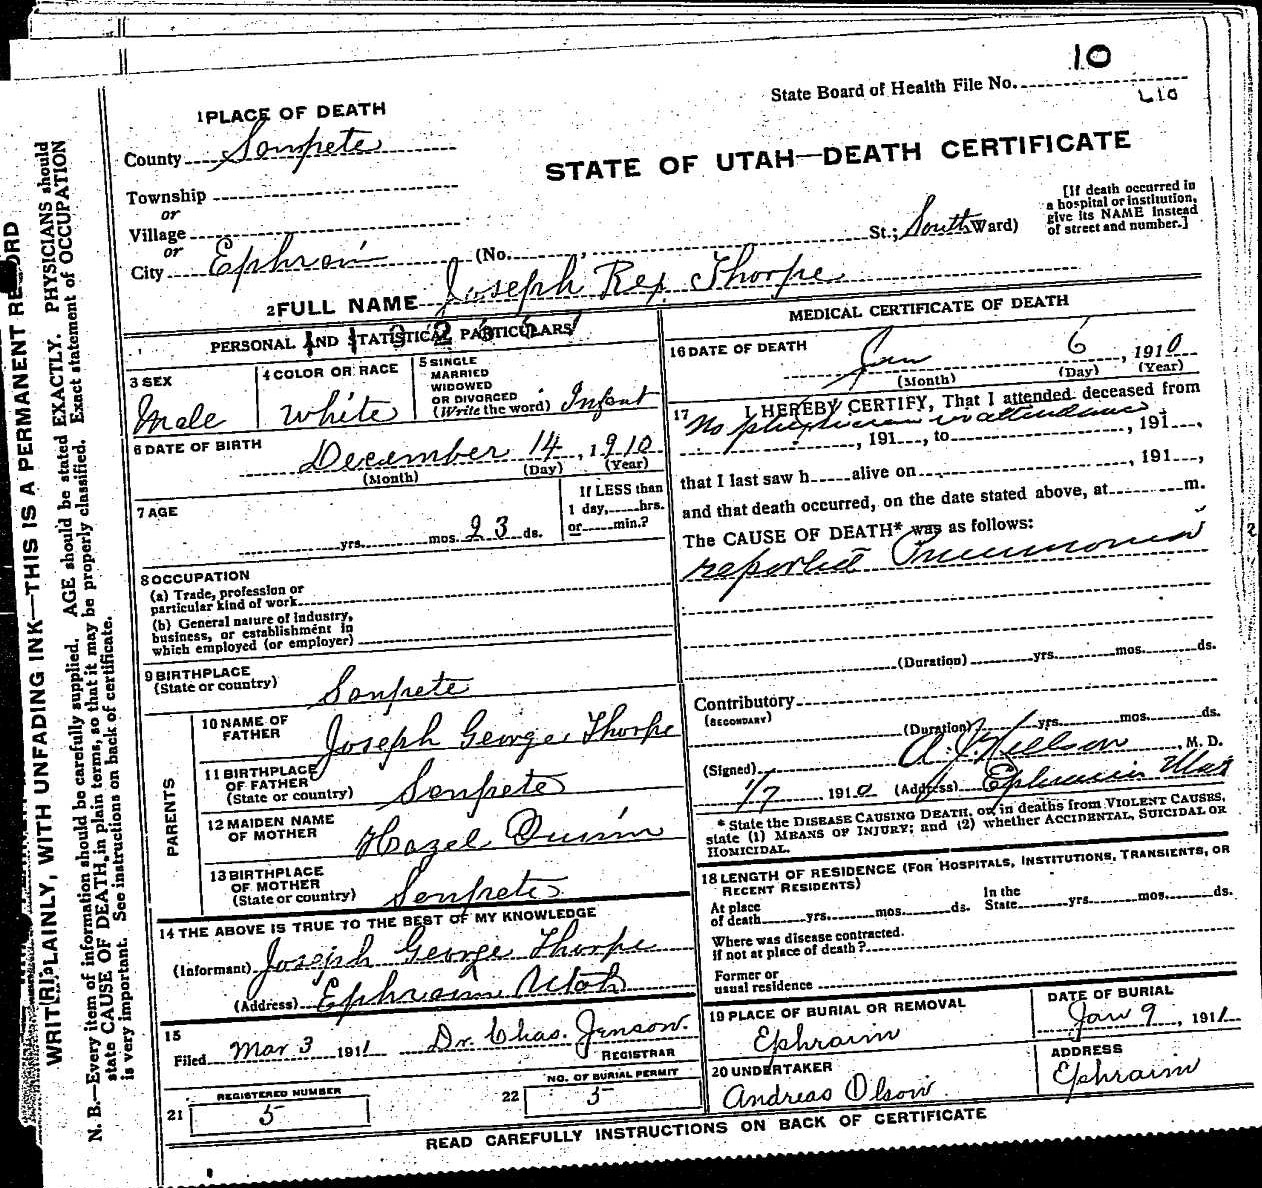 10
State Board of Health File No.
L10
1 PLACE OF DEATH
County Sanpete
STATE OF UTAH—DEATH CERTIFICATE
Township
or
Village
or
City Ephraim (No. St.; South Ward)
[If death occurred in
a hospital or institution,
give its NAME instead
of street and number.]
2 FULL NAME Joseph Rex Thorpe
PERSONAL AND STATISTICAL PARTICULARS
3 SEX
Male
4 COLOR OR RACE
White
5 SINGLE
MARRIED
WIDOWED
OR DIVORCED
(Write the word) Infant
6 DATE OF BIRTH
December 14, 1910
(Month) (Day) (Year)
7 AGE
yrs. mos. 23 ds.
If LESS than
1 day, hrs.
or min.?
8 OCCUPATION
(a) Trade, profession or
particular kind of work
(b) General nature of industry,
business, or establishment in
which employed (or employer)
9 BIRTHPLACE
(State or country) Sanpete
PARENTS
10 NAME OF
FATHER Joseph George Thorpe
11 BIRTHPLACE
OF FATHER
(State or country) Sanpete
12 MAIDEN NAME
OF MOTHER Hazel Quinn
13 BIRTHPLACE
OF MOTHER
(State or country) Sanpete
14 THE ABOVE IS TRUE TO THE BEST OF MY KNOWLEDGE
(Informant) Joseph George Thorpe
(Address) Ephraim Utah
15
Filed Mar 3 1911 Dr. Chas. Jenson.
REGISTRAR
21 REGISTERED NUMBER
5
22 NO. OF BURIAL PERMIT
5
MEDICAL CERTIFICATE OF DEATH
16 DATE OF DEATH
Jan 6, 1910
(Month) (Day) (Year)
17 I HEREBY CERTIFY, That I attended deceased from
No physician in attendance
, 191, to , 191,
that I last saw h alive on , 191,
and that death occurred, on the date stated above, at m.
The CAUSE OF DEATH* was as follows:
reported Pneumonia
(Duration) yrs. mos. ds.
Contributory
(SECONDARY)
(Duration) yrs. mos. ds.
(Signed) A. J. Nielson, M. D.
1/7 1910 (Address) Ephraim Utah
* State the DISEASE CAUSING DEATH, or, in deaths from VIOLENT CAUSES,
state (1) MEANS OF INJURY; and (2) whether ACCIDENTAL, SUICIDAL OR
HOMICIDAL.
18 LENGTH OF RESIDENCE (FOR HOSPITALS, INSTITUTIONS, TRANSIENTS, OR
RECENT RESIDENTS)
At place
of death yrs. mos. ds.
In the
State yrs. mos. ds.
Where was disease contracted.
if not at place of death?
Former or
usual residence
19 PLACE OF BURIAL OR REMOVAL
Ephraim
DATE OF BURIAL
Jan 9, 1911
20 UNDERTAKER
Andreas Olson
ADDRESS
Ephraim
READ CAREFULLY INSTRUCTIONS ON BACK OF CERTIFICATE
WRITE PLAINLY, WITH UNFADING INK—THIS IS A PERMANENT RECORD
N. B.—Every item of information should be carefully supplied. AGE should be stated EXACTLY. PHYSICIANS should
state CAUSE OF DEATH in plain terms, so that it may be properly classified. Exact statement of OCCUPATION
is very important. See instructions on back of certificate.